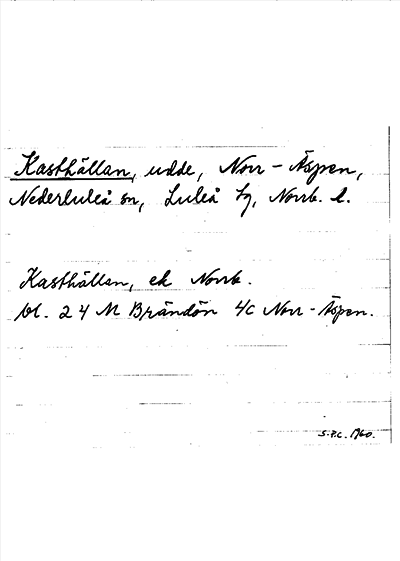 Kasthällan, udde, Norr-Äspen,
Nederluleå sn, Luleå tg, Norrb. l.
Kasthällan, ek Norrb.
bl. 24 M Brändön 4c Norr-Äspen.
S.P.C. 1960.